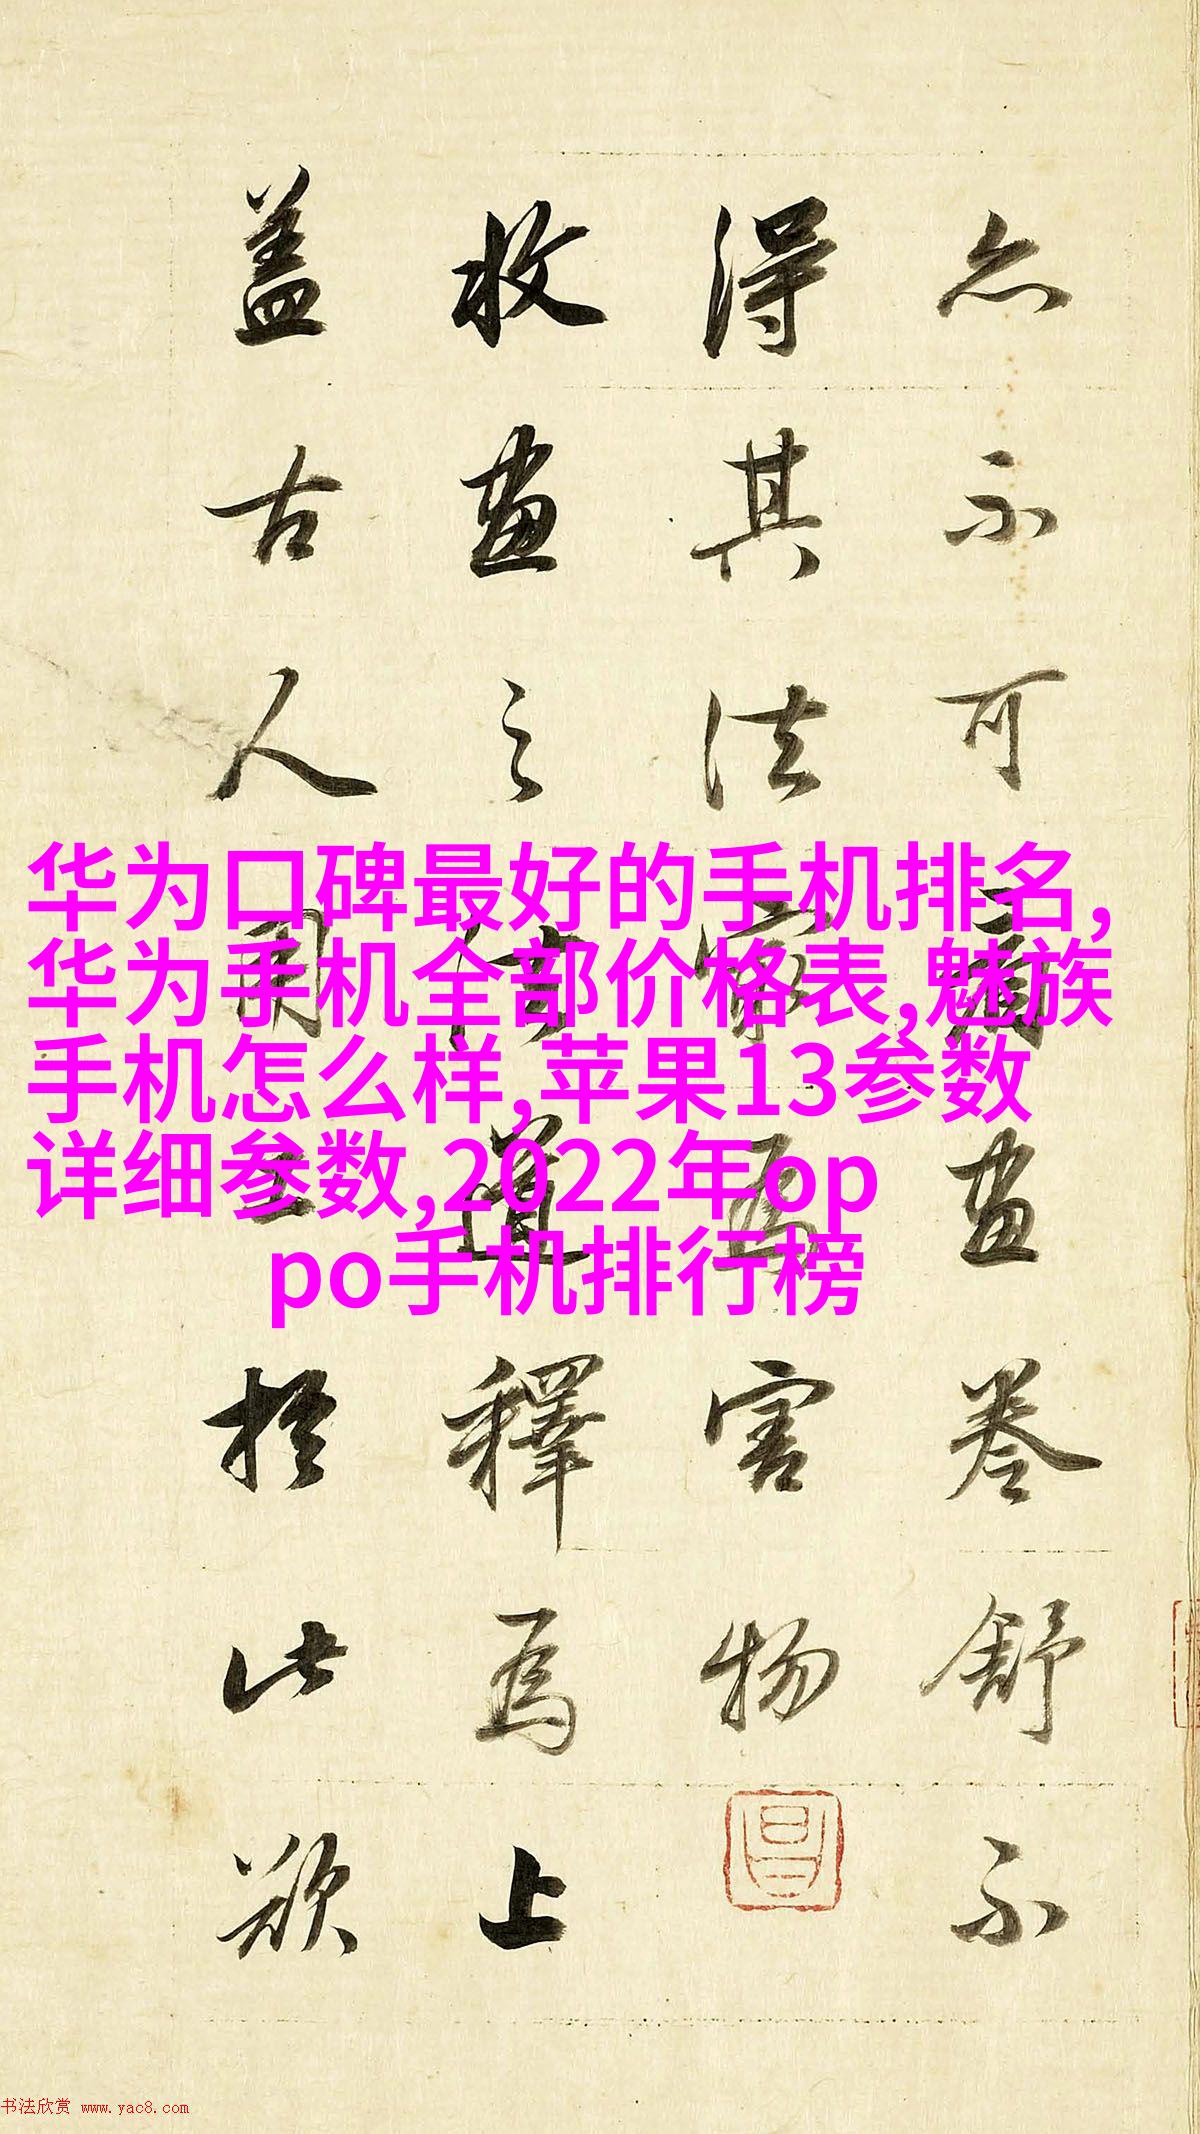 华为口碑最好的手机排名,
华为手机全部价格表,魅族
手机怎么样,苹果13参数
详细参数,2022年op
po手机排行榜
亦不可
画卷舒不
得其法
害物
收画之
道释为上
盖古人
于此欤
书法欣赏 www.yac8.com